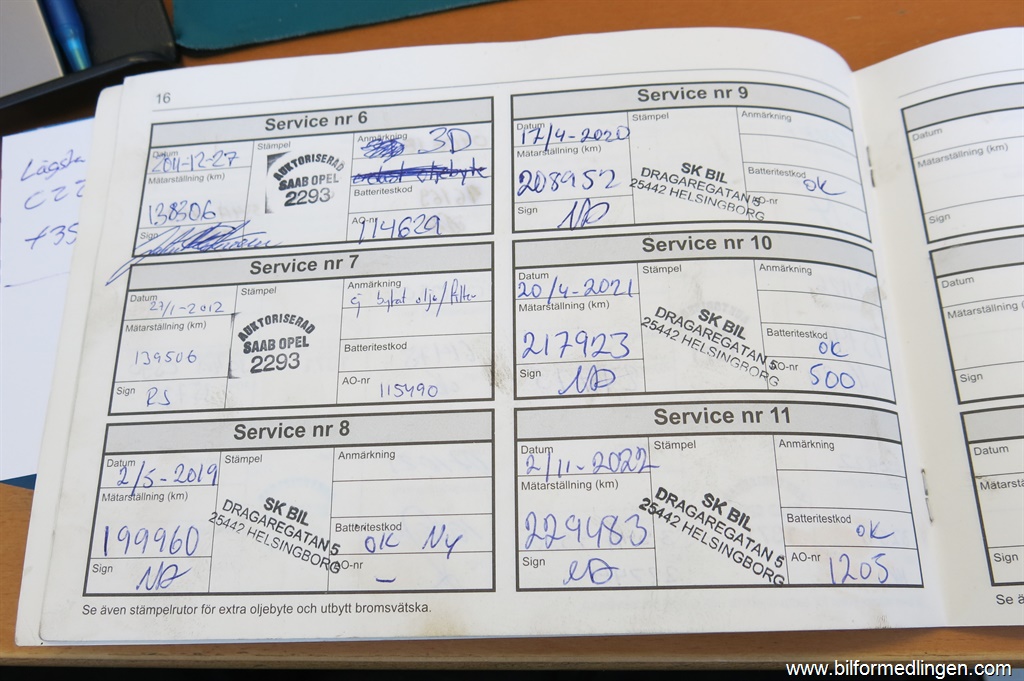 Lägsta
C22
+35
16
Service nr 6
Datum
2011-12-27
Mätarställning (km)
138306
Sign
Stämpel
AUKTORISERAD
SAAB OPEL
2293
Anmärkning
3D
oljebyte
Batteritestkod
AO-nr
114629
Service nr 7
Datum
27/1-2012
Mätarställning (km)
139506
Sign
RS
Stämpel
AUKTORISERAD
SAAB OPEL
2293
Anmärkning
ej bytat olje/filter
Batteritestkod
AO-nr
115490
Service nr 8
Datum
2/5-2019
Mätarställning (km)
199960
Sign
Stämpel
SK BIL
DRAGAREGATAN 5
25442 HELSINGBORG
Anmärkning
Batteritestkod
OK Ny
AO-nr
–
Se även stämpelrutor för extra oljebyte och utbytt bromsvätska.
Service nr 9
Datum
17/4-2020
Mätarställning (km)
208952
Sign
Stämpel
SK BIL
DRAGAREGATAN 5
25442 HELSINGBORG
Anmärkning
Batteritestkod
OK
Service nr 10
Datum
20/4-2021
Mätarställning (km)
217923
Sign
Stämpel
SK BIL
DRAGAREGATAN 5
25442 HELSINGBORG
Anmärkning
Batteritestkod
OK
AO-nr
500
Service nr 11
Datum
2/11-2022
Mätarställning (km)
229483
Sign
Stämpel
SK BIL
DRAGAREGATAN 5
25442 HELSINGBORG
Anmärkning
Batteritestkod
OK
AO-nr
1205
Datum
Mätarställning (km)
Sign
Datum
Mätarställning
Sign
Datum
Mätarställ
Sign
Se ä
www.bilformedlingen.com